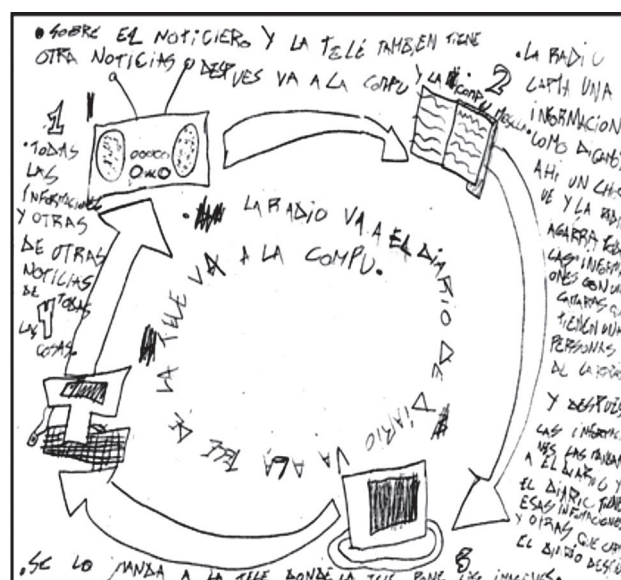 • SOBRE EL NOTICIERO Y LA TELE TAMBIEN TIENE
OTRA NOTICIAS DESPUES VA A LA COMPU Y LA COMPU MESCLA.
1
• TODAS
LAS
INFORMACIONES
Y OTRAS
DE OTRAS
NOTICIAS
DE TODAS
LAS
COSAS.
4
2
• LA RADIO
CAPTA UNA
INFORMACION
COMO DIGAMOS
AHI UN
UE Y LA RADIO
AGARRA
LAS INFORMACI
ONES CON
CAMARAS
TIENEN UNA
PERSONAS
DE LA
Y DESPUES
LAS INFORMACIO
NES LAS MANDAN
A EL DIARIO Y
EL DIARIO TIENE
ESAS INFORMACIONES
Y OTRAS QUE
EL DIARIO DESPUES
• LA RADIO VA A EL DIARIO DE DIARIO VA A LA TELE DE LA TELE VA A LA COMPU.
3
• SE LO MANDA A LA TELE DONDE LA TELE PONE LAS IMAGENES